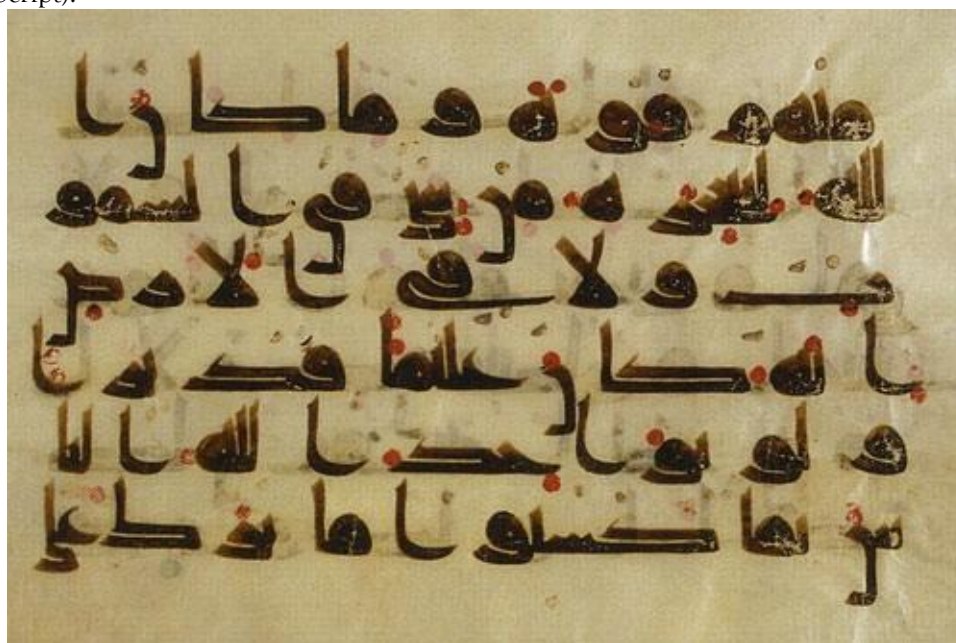 Script).
منهم قوة وما كان ا
لله ليعجزه من شى فى السمو
ت ولا فى الارض
انه كان عليما قديرا
ولو يواخذ الله النا
س بما كسبوا ما ترك على